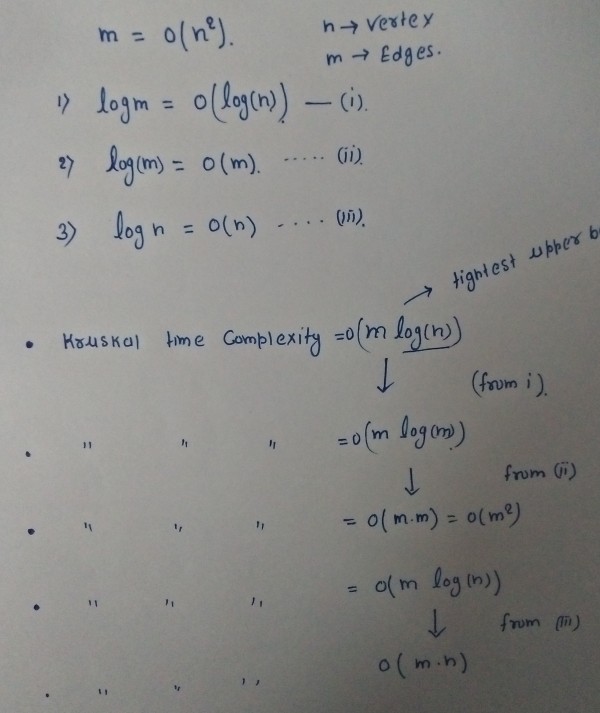 m = O(n²).
n → vertex
m → Edges.
1) log m = O(log(n)) — (i).
2) log(m) = O(m). ..... (ii).
3) log n = O(n) .... (iii).
→ tightest upper
• Kruskal time Complexity = O(m log(n))
↓ (from i).
• " " " = O(m log(m))
↓ from (ii)
• " " " = O(m·m) = O(m²)
• " " " = O(m log(n))
↓ from (iii)
O(m·n)
• " " "